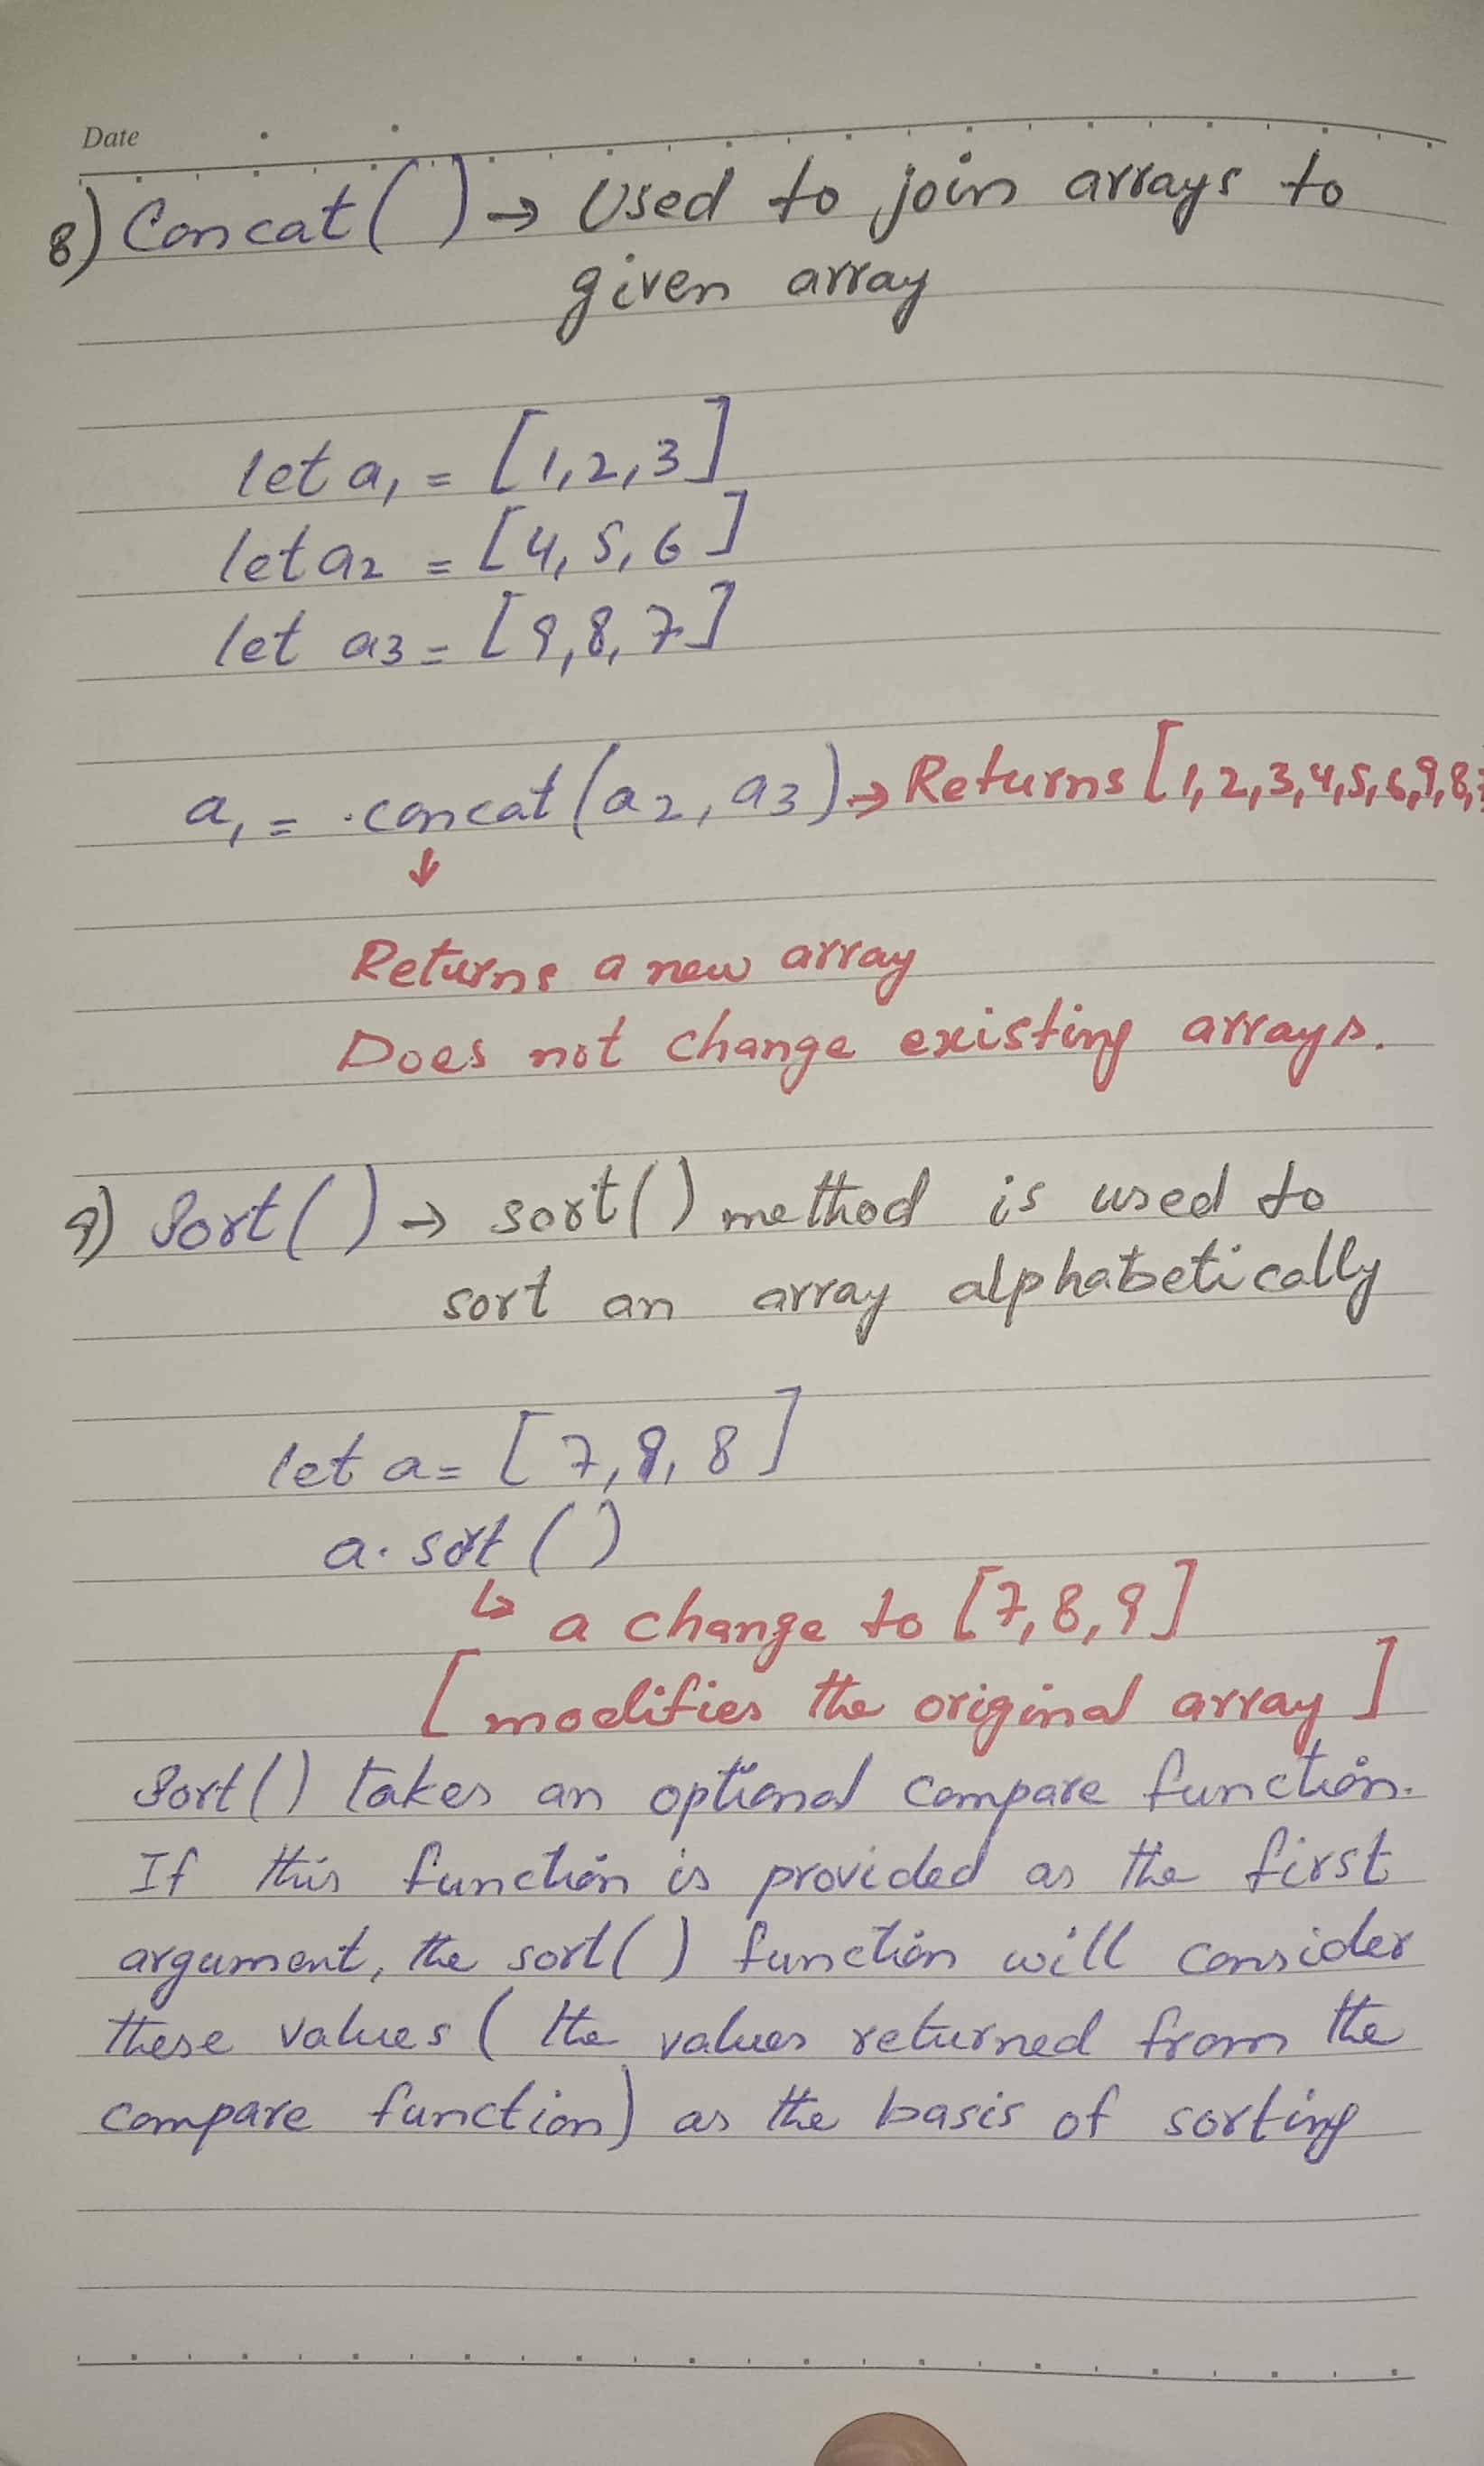 Date
8) Concat() → Used to join arrays to
given array
let a1 = [1,2,3]
let a2 = [4,5,6]
let a3 = [9,8,7]
a1 = .concat(a2, a3) → Returns [1,2,3,4,5,6,9,8,
↓
Returns a new array
Does not change existing arrays.
9) Sort() → sort() method is used to
sort an array alphabetically
let a = [7,9,8]
a.sort()
↳ a change to [7,8,9]
[modifies the original array]
Sort() takes an optional compare function.
If this function is provided as the first
argument, the sort() function will consider
these values (the values returned from the
compare function) as the basis of sorting